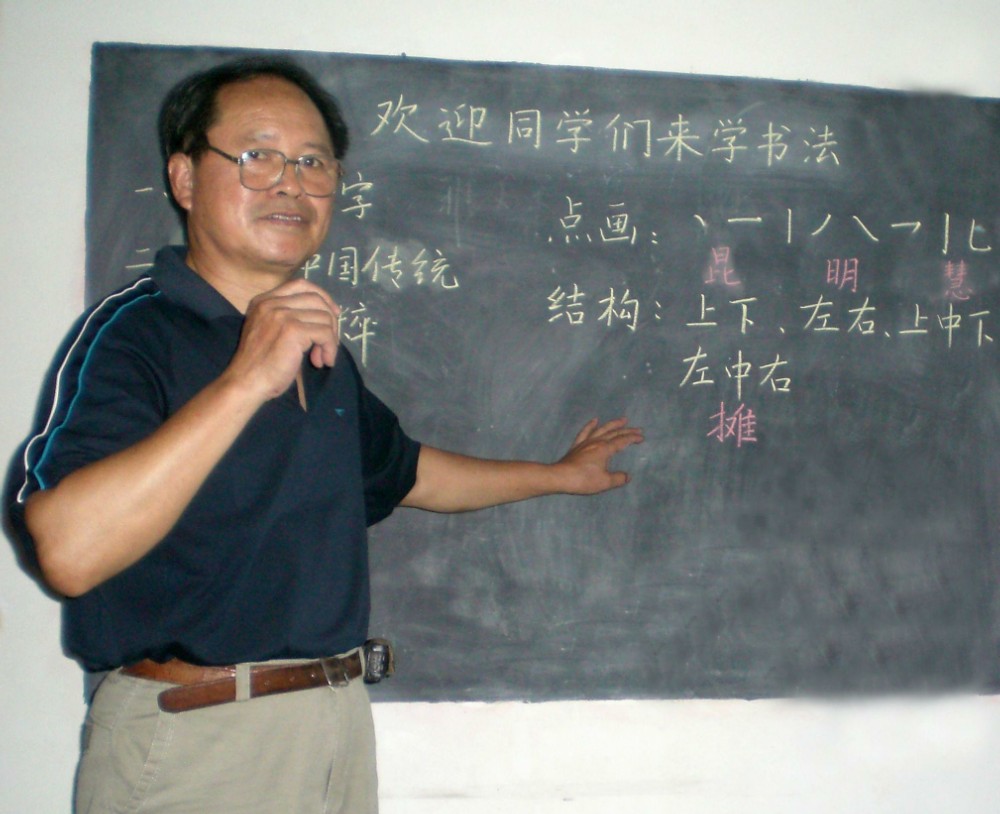 欢迎同学们来学书法
一 字
二 中国传统
粹
点画：丶一丨丿乀乛亅乚
昆 明 慧
结构：上下、左右、上中下
左中右
摊